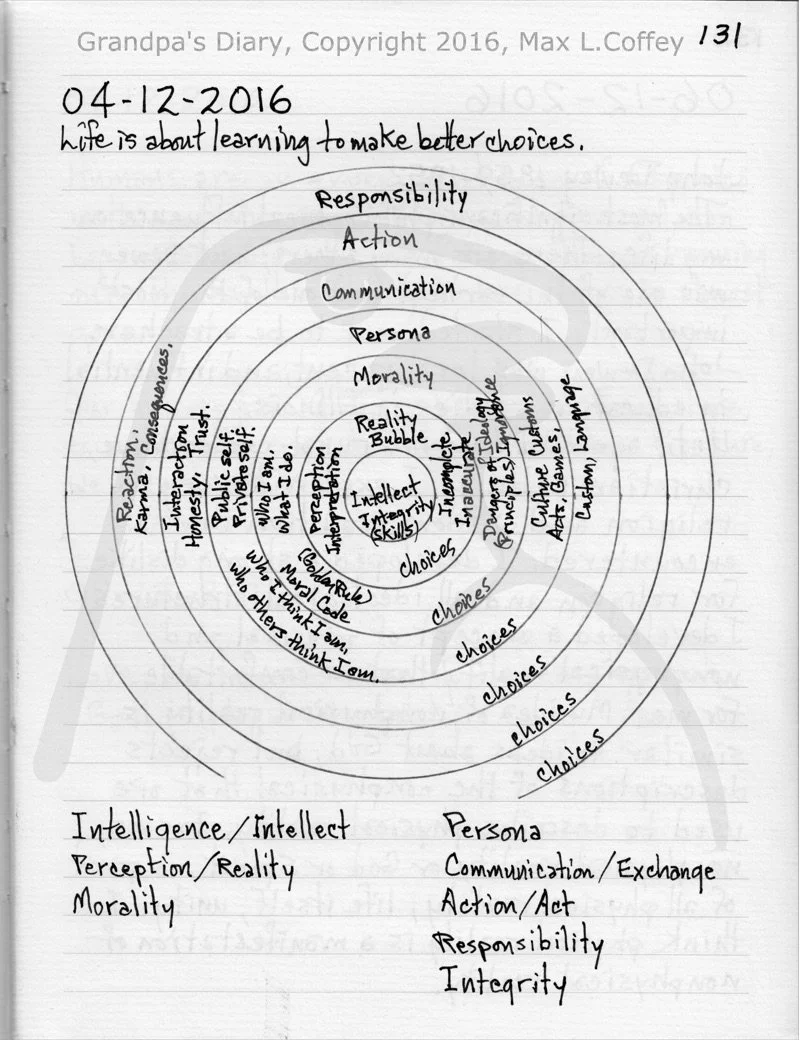 Grandpa's Diary, Copyright 2016, Max L.Coffey
131
04-12-2016
Life is about learning to make better choices.
Responsibility
Action
Communication
Persona
Morality
Reality
Bubble
Intellect
Integrity
(skills)
Reaction,
Karma, Consequences.
Interaction
Honesty, Trust.
Public self.
Private self.
Who I am.
What I do.
Perception
Interpretation
Incomplete
Inaccurate
Dangers of Ideology
(Principles/Ignorance
Culture Customs
Acts, Games,
Custom, Language
(Golden Rule)
Moral Code
Who I think I am,
who others think I am.
choices
choices
choices
choices
choices
choices
Intelligence/Intellect
Perception/Reality
Morality
Persona
Communication/Exchange
Action/Act
Responsibility
Integrity